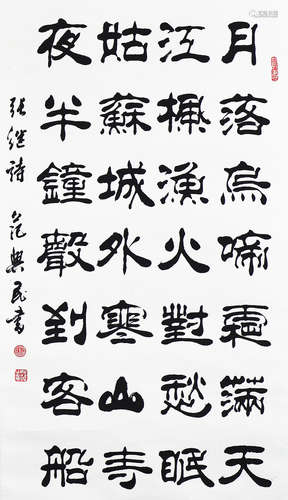 月落烏啼霜滿天
江楓漁火對愁眠
姑蘇城外寒山寺
夜半鐘聲到客船
張継詩
范興民書